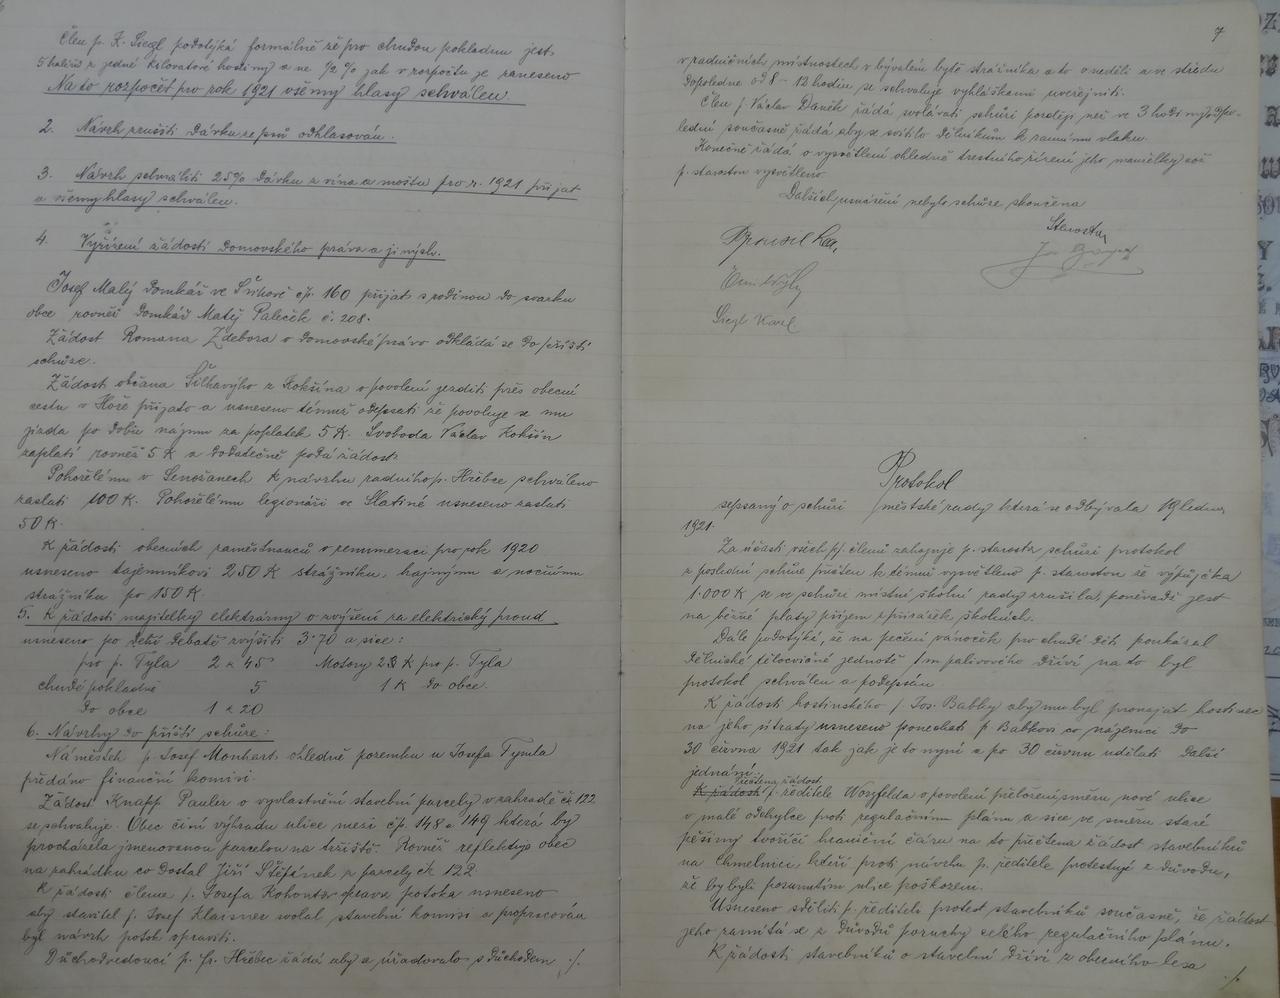 Člen p. K. Siegl podotýká formálně že pro chudou pokladnu jest
5 haléřů z jedné kilovatové hodiny a ne ½ % jak v rozpočtu je zaneseno
Na to rozpočet pro rok 1921 všemy hlasy schválen.
2. Návrh zrušiti dávku ze psů odhlasován.
3. Návrh schváliti 25% dávku z vína a moštu pro r. 1921 přijat
a všemy hlasy schválen.
4. Vyřízení žádostí domovského práva a jiných.
Josef Malý domkář ve Švihově čp. 160 přijat s rodinou do svazku
obce rovněž domkář Matěj Paleček č. 208.
Žádost Romana Zdebora o domovské právo odkládá se do příští
schůze.
Žádosti občana Šilhavýho z Kokšína o povolení jezditi přes obecní
cestu v Hoře přijato a usneseno témuž odepsati že povoluje se mu
jízda po dobu nájmu za poplatek 5 K. Svoboda Václav Kokšín
zaplatí rovněž 5 K a dodatečně podá žádost.
Pohořelému v Senožanech k návrhu radního p. Hřebce schváleno
zaslati 100 K. Pohořelému legionáři ve Slatině usneseno zaslati
50 K.
K žádosti obecních zaměstnanců o remuneraci pro rok 1920
usneseno tajemníkovi 250 K strážníku, hajnýmu a nočnímu
strážníku po 150 K.
5. K žádosti majitelky elektrárny o zvýšení za elektrický proud
usneseno po delší debatě zvýšiti 3·70 a sice:
pro p. Tyla 2 K 45 Motory 23 K pro p. Tyla
chudé pokladně 5 1 K do obce.
do obce 1 K 20
6. Návrhy do příští schůze:
Náměstek p. Josef Monhart ohledně pozemku u Josefa Tymla
předáno finanční komisi.
Žádost Knapp Pauler o vyvlastnění stavební parcely v zahradě čk 122
se schvaluje. Obec činí výhradu ulice mezi čp. 148 a 149 která by
procházela jmenovanou parcelou na tržiště. Rovněž reflektuje obec
na zahrádku co dostal Jiří Štěftánek z parcely čk 122
K žádosti člena p. Josefa Kohouta oprava potoka usneseno
aby stavitel p. Josef Klaisner svolal stavební komisi a propracován
byl návrh potok opraviti.
Důchodvedoucí p. Fr. Hřebec žádá aby a úřadovalo s důchodem ./.
7
v radničních místnostech v bývalém bytě strážníka a to o neděli a ve středu
dopoledne od 8 – 12 hodin se schvaluje vyhláškami uveřejniti.
Člen p. Václav Daněk žádá svolávati schůzi později než ve 3 hodiny odpo-
lední současně žádá aby se svítilo dělníkům k rannímu vlaku.
Konečně žádá o vysvětlení ohledně trestního řízení jeho manželky což
p. starostou vysvětleno.
Dalších usnášení nebylo schůze skončena
Starosta
Siegl Karel
Protokol
sepsaný o schůzi městské rady která se odbývala 19 ledna
1921.
Za účasti všech pp. členů zahajuje p. starosta schůzi protokol
z poslední schůze přečten k čemu vysvětleno p. starostou že výpůjčka
1.000 K se ve schůzi místní školní rady zrušila, poněvadž jest
na běžné platy příjem z přirážek školních.
Dále podotýká, že na pečení vánoček pro chudé děti poukázal
dělnické tělocvičné jednotě 1 m palivového dříví na to byl
protokol schválen a podepsán.
K žádosti hostinského p. Jos. Babky aby mu byl pronajat hostinec
na jeho útraty usneseno ponechati p Babkovi co nájemci do
30 června 1921 tak jak je to nyní a po 30 červnu udělati další
jednání.
Přečtena žádost
K žádosti p. ředitele Worzfelda o povolení přeložení směru nové ulice
v malé odchylce proti regulačnímu plánu a sice ve směru staré
pěšiny tvořící hraniční čáru na to přečtena žádost stavebníků
na Chmelnici kteří proti návrhu p. ředitele protestují z důvodu,
že by byli posunutím ulice poškozeni.
Usneseno sděliti p. řediteli protest stavebníků současně, že žádost
jeho zamítá se z důvodů poruchy celého regulačního plánu.
K žádosti stavebníků o stavební dříví z obecního lesa
./.